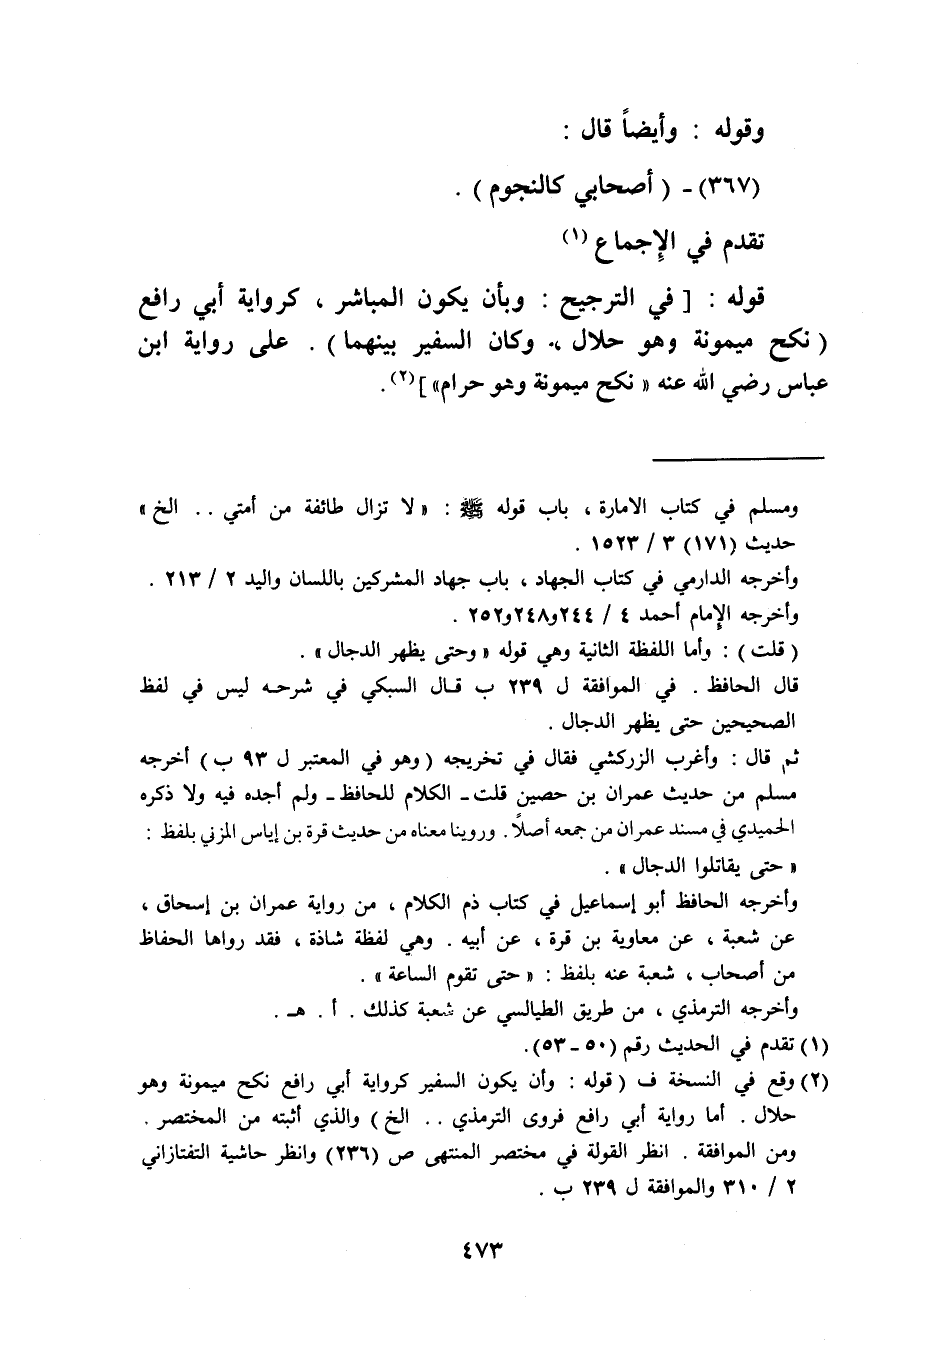 وقوله : وأيضاً قال :
(٣٦٧) - ( أصحابي كالنجوم ) .
تقدم في الإجماع (١)
قوله : [ في الترجيح : وبأن يكون المباشر ، كرواية أبي رافع
( نكح ميمونة وهو حلال ، وكان السفير بينهما ) . على رواية ابن
عباس رضي الله عنه « نكح ميمونة وهو حرام» ] (٢).
ومسلم في كتاب الامارة ، باب قوله ﷺ : « لا تزال طائفة من أمتي .. الخ »
حديث (١٧١) ٣ / ١٥٢٣ .
وأخرجه الدارمي في كتاب الجهاد ، باب جهاد المشركين باللسان واليد ٢ / ٢١٣ .
وأخرجه الإمام أحمد ٤ / ٢٤٤و٢٤٨و٢٥٢ .
( قلت ) : وأما اللفظة الثانية وهي قوله « وحتى يظهر الدجال » .
قال الحافظ . في الموافقة ل ٢٣٩ ب قـال السبكي في شرحـه ليس في لفظ
الصحيحين حتى يظهر الدجال .
ثم قال : وأغرب الزركشي فقال في تخريجه ( وهو في المعتبر ل ٩٣ ب ) أخرجه
مسلم من حديث عمران بن حصين قلت ـ الكلام للحافظ ـ ولم أجده فيه ولا ذكره
الحميدي في مسند عمران من جمعه أصلاً . وروينا معناه من حديث قرة بن إياس المزني بلفظ :
« حتى يقاتلوا الدجال » .
وأخرجه الحافظ أبو إسماعيل في كتاب ذم الكلام ، من رواية عمران بن إسحاق ،
عن شعبة ، عن معاوية بن قرة ، عن أبيه . وهي لفظة شاذة ، فقد رواها الحفاظ
من أصحاب ، شعبة عنه بلفظ : « حتى تقوم الساعة » .
وأخرجه الترمذي ، من طريق الطيالسي عن شعبة كذلك . أ . هـ .
(١) تقدم في الحديث رقم (٥٠ - ٥٣).
(٢) وقع في النسخة ف ( قوله : وأن يكون السفير كرواية أبي رافع نكح ميمونة وهو
حلال . أما رواية أبي رافع فروى الترمذي .. الخ ) والذي أثبته من المختصر .
ومن الموافقة . انظر القولة في مختصر المنتهى ص (٢٣٦) وانظر حاشية التفتازاني
٢ / ٣١٠ والموافقة ل ٢٣٩ ب .
٤٧٣